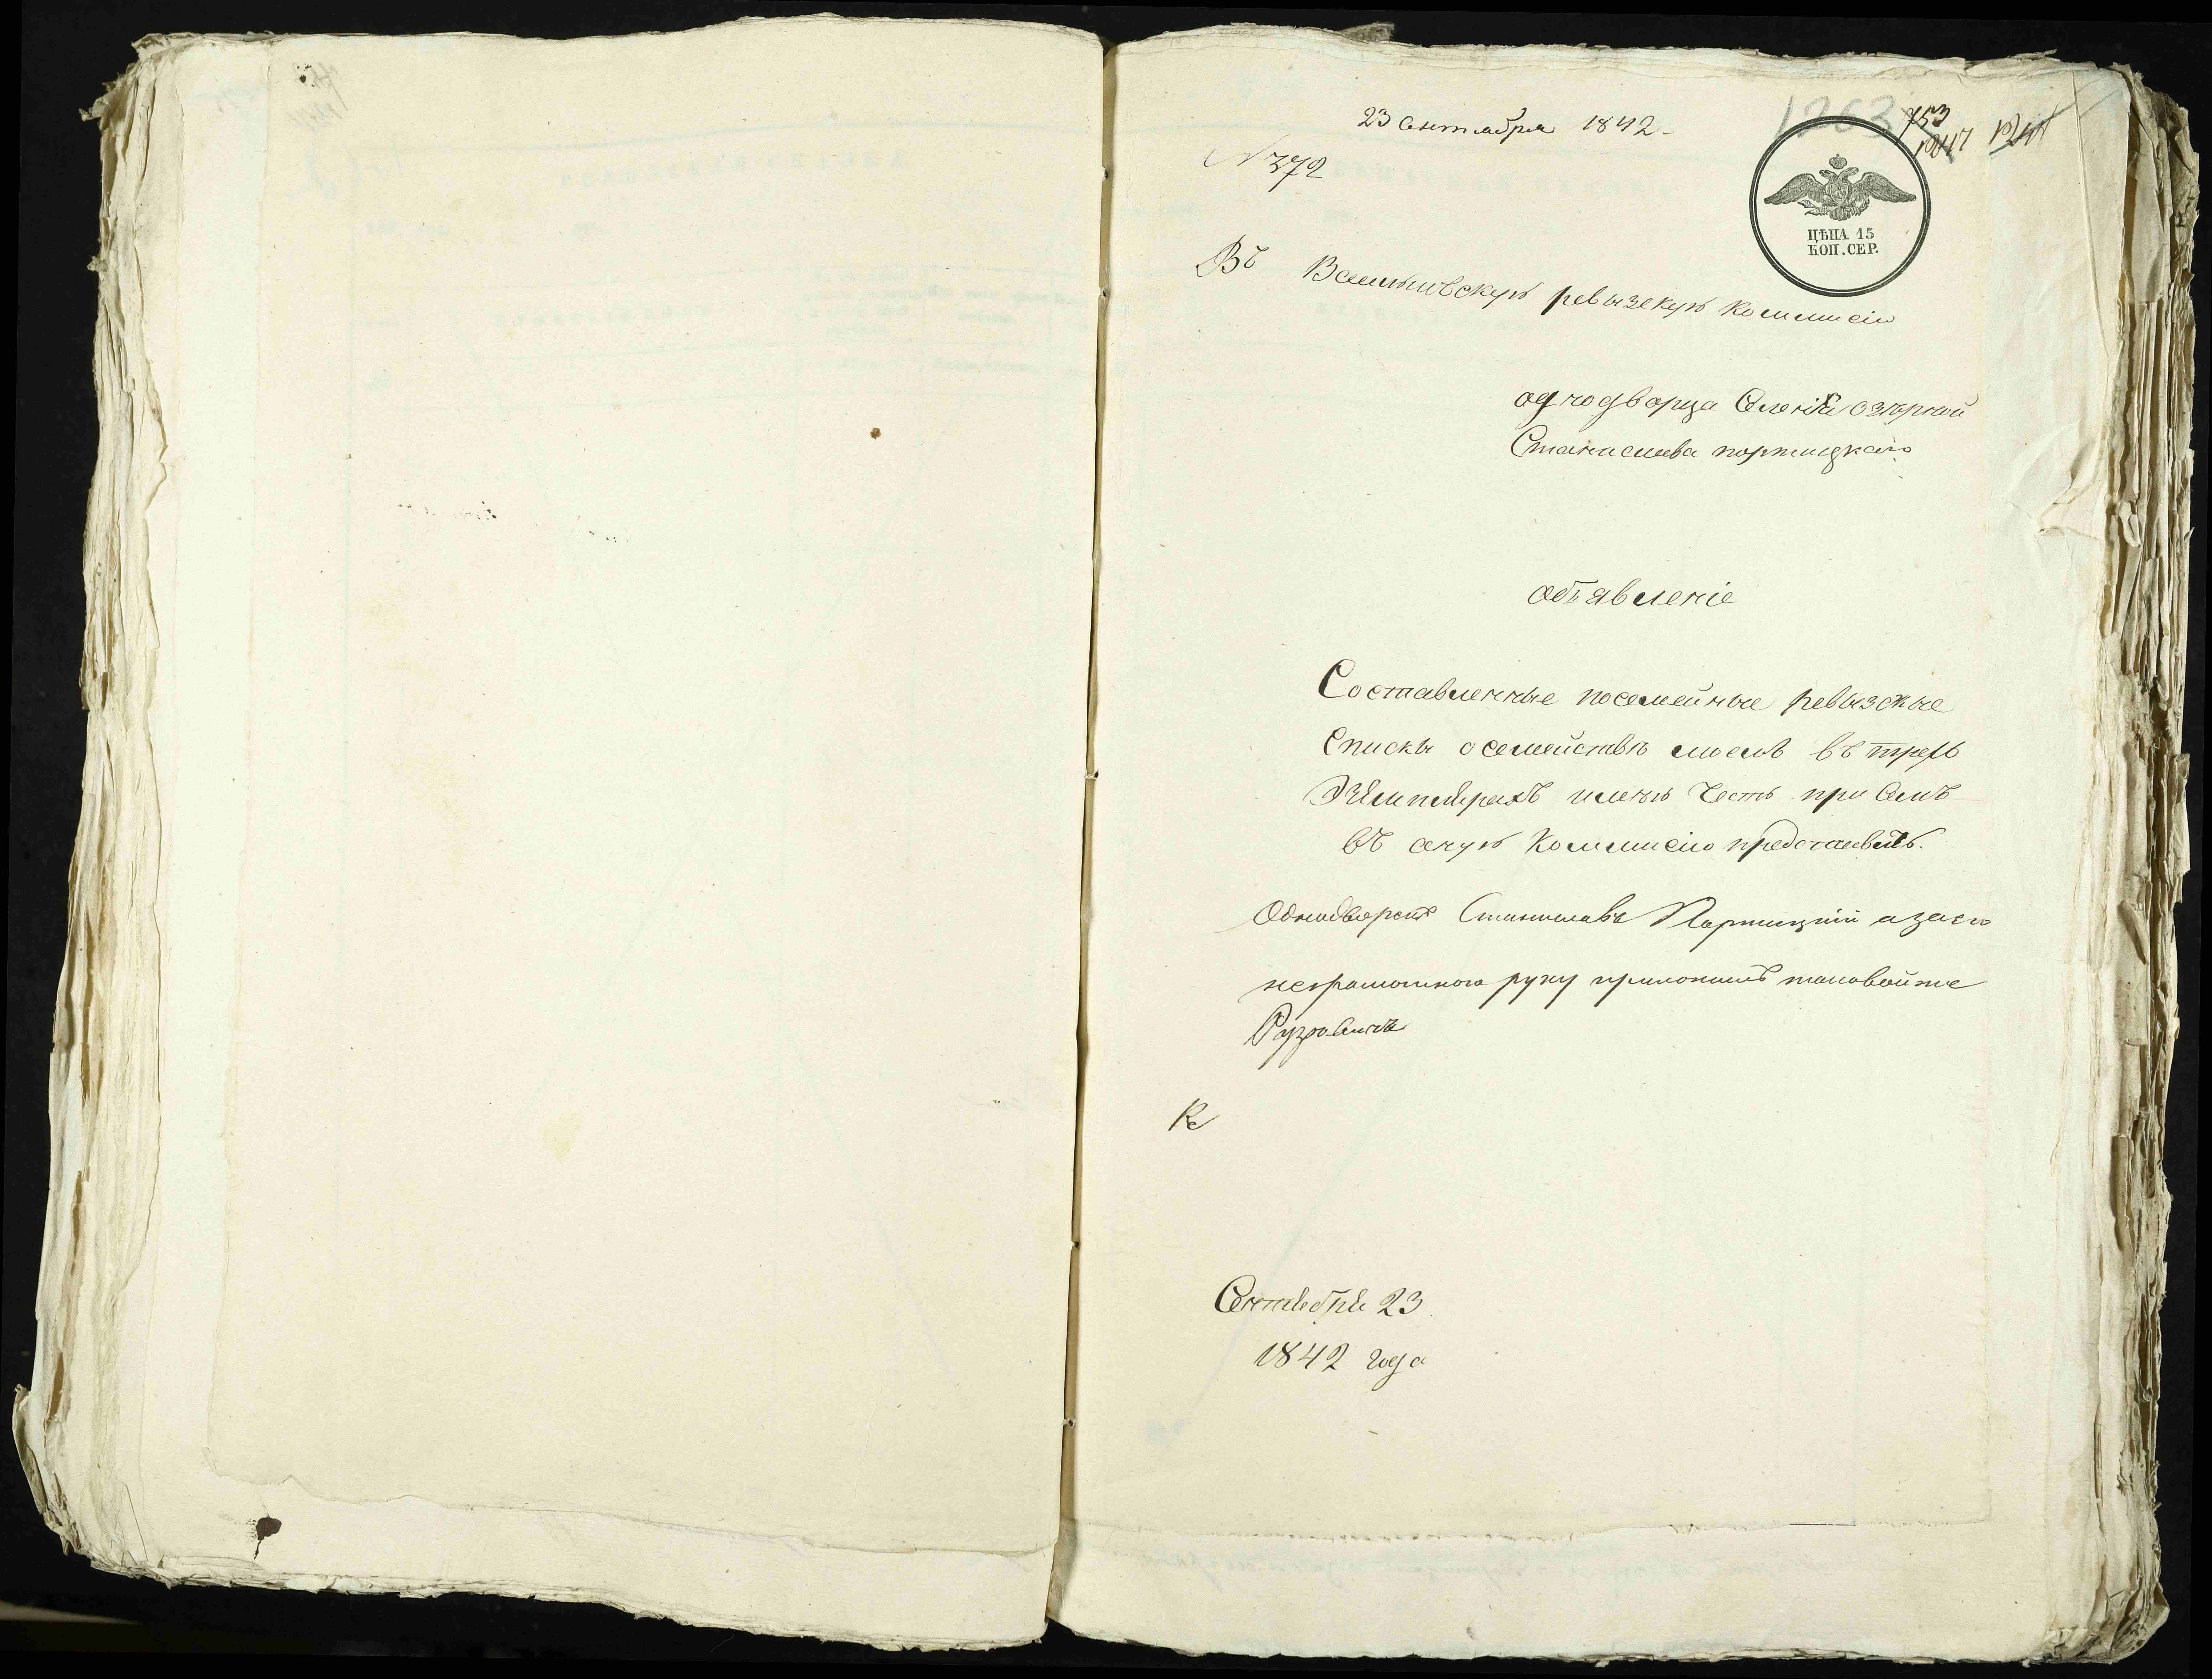 23 Сентября 1842
1263 753
N 372
ЦѢНА 15
КОП. СЕР.
Въ ревызскую Коммисію
однодворца озѣрной
Станислава портицкаго
объявленіе
Составленные посемейные ревызские
Списки о семействѣ моемъ въ трехъ
имѣю честь при семъ
въ оную Коммисію представить.
Однодворецъ Станиславъ Портицкій а за его
неграмотного руку приложилъ таковой же
Сентебре 23
1842 года